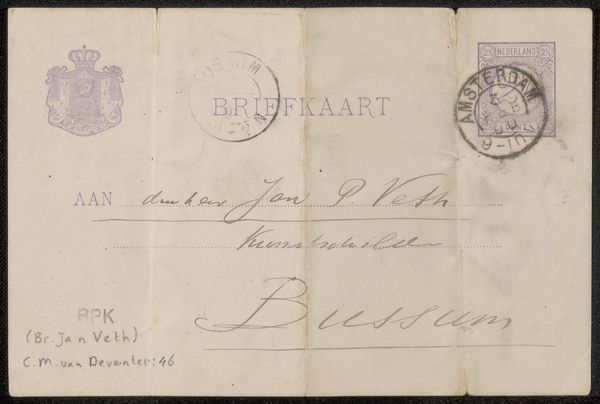 NEDERLAND
BUSSUM
BRIEFKAART
AMSTERDAM
9-10V
AAN den heer Jan P. Veth
Kunstschilder
Bussum
RPK
(Br. Jan Veth)
C.M. van Deventer: 46